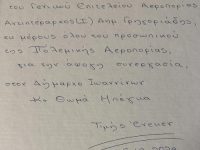 του Γενικού Επιτελείου Αεροπορίας
Αντιπτέραρχος(Ι) Δημ Γρηγοριάδης,
εκ μέρους όλου του προσωπικού
της Πολεμικής Αεροπορίας,
για την άψογη συνεργασία,
στον Δήμαρχο Ιωαννίνων
Κο Θωμά Μπέγκα
Τιμής Ένεκεν